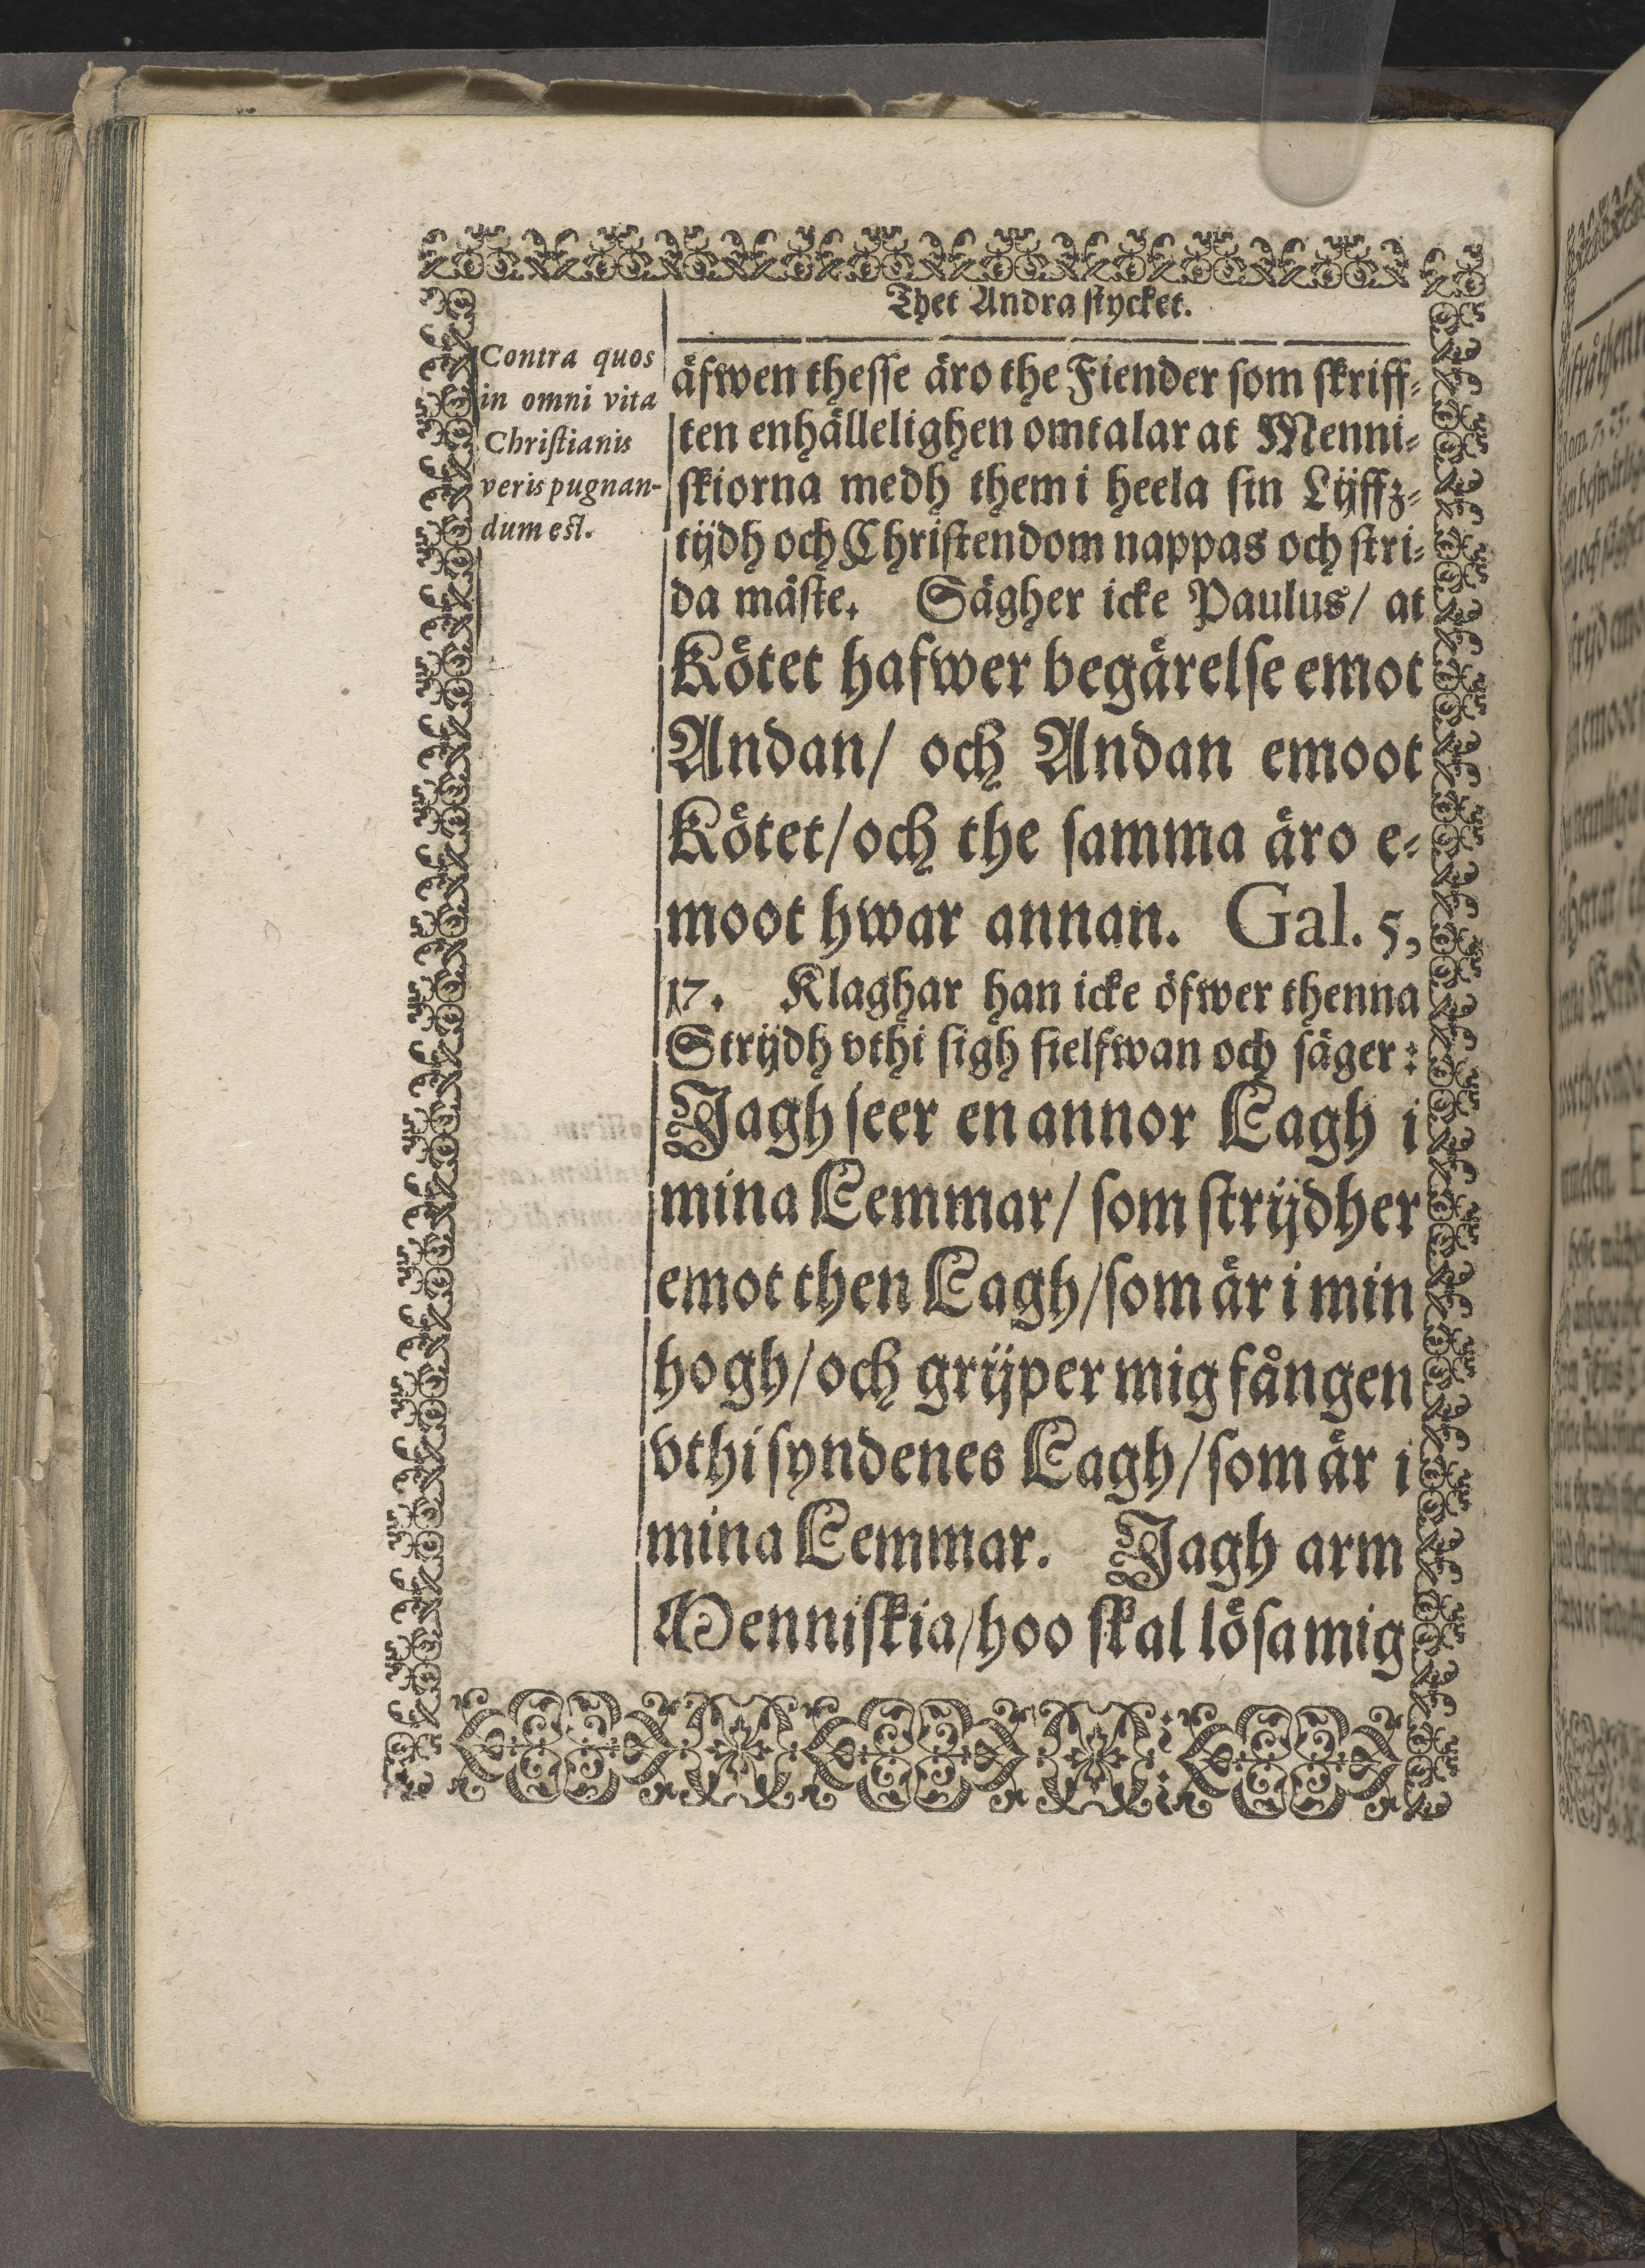 Thet Andra stycket.
Contra quos
in omni vita
Christianis
veris pugnan-
dum est.
äfwen thesse äro the Fiender som skriff-
ten enhällelighen omtalar at Menni-
skiorna medh them i heela sin Lijffz-
tijdh och Christendom nappas och stri-
da måste. Sägher icke Paulus/ at
Kötet hafwer begärelse emot
Andan/ och Andan emoot
Kötet/ och the samma äro e-
moot hwar annan. Gal. 5,
17. Klaghar han icke öfwer thenna
Strijdh vthi sigh sielfwan och säger:
Jagh seer en annor Lagh i
mina Lemmar/ som strijdher
emot then Lagh/ som är i min
hogh/ och grijper mig fången
vthi syndenes Lagh/ som är i
mina Lemmar. Jagh arm
Menniskia/ hoo skal lösa mig